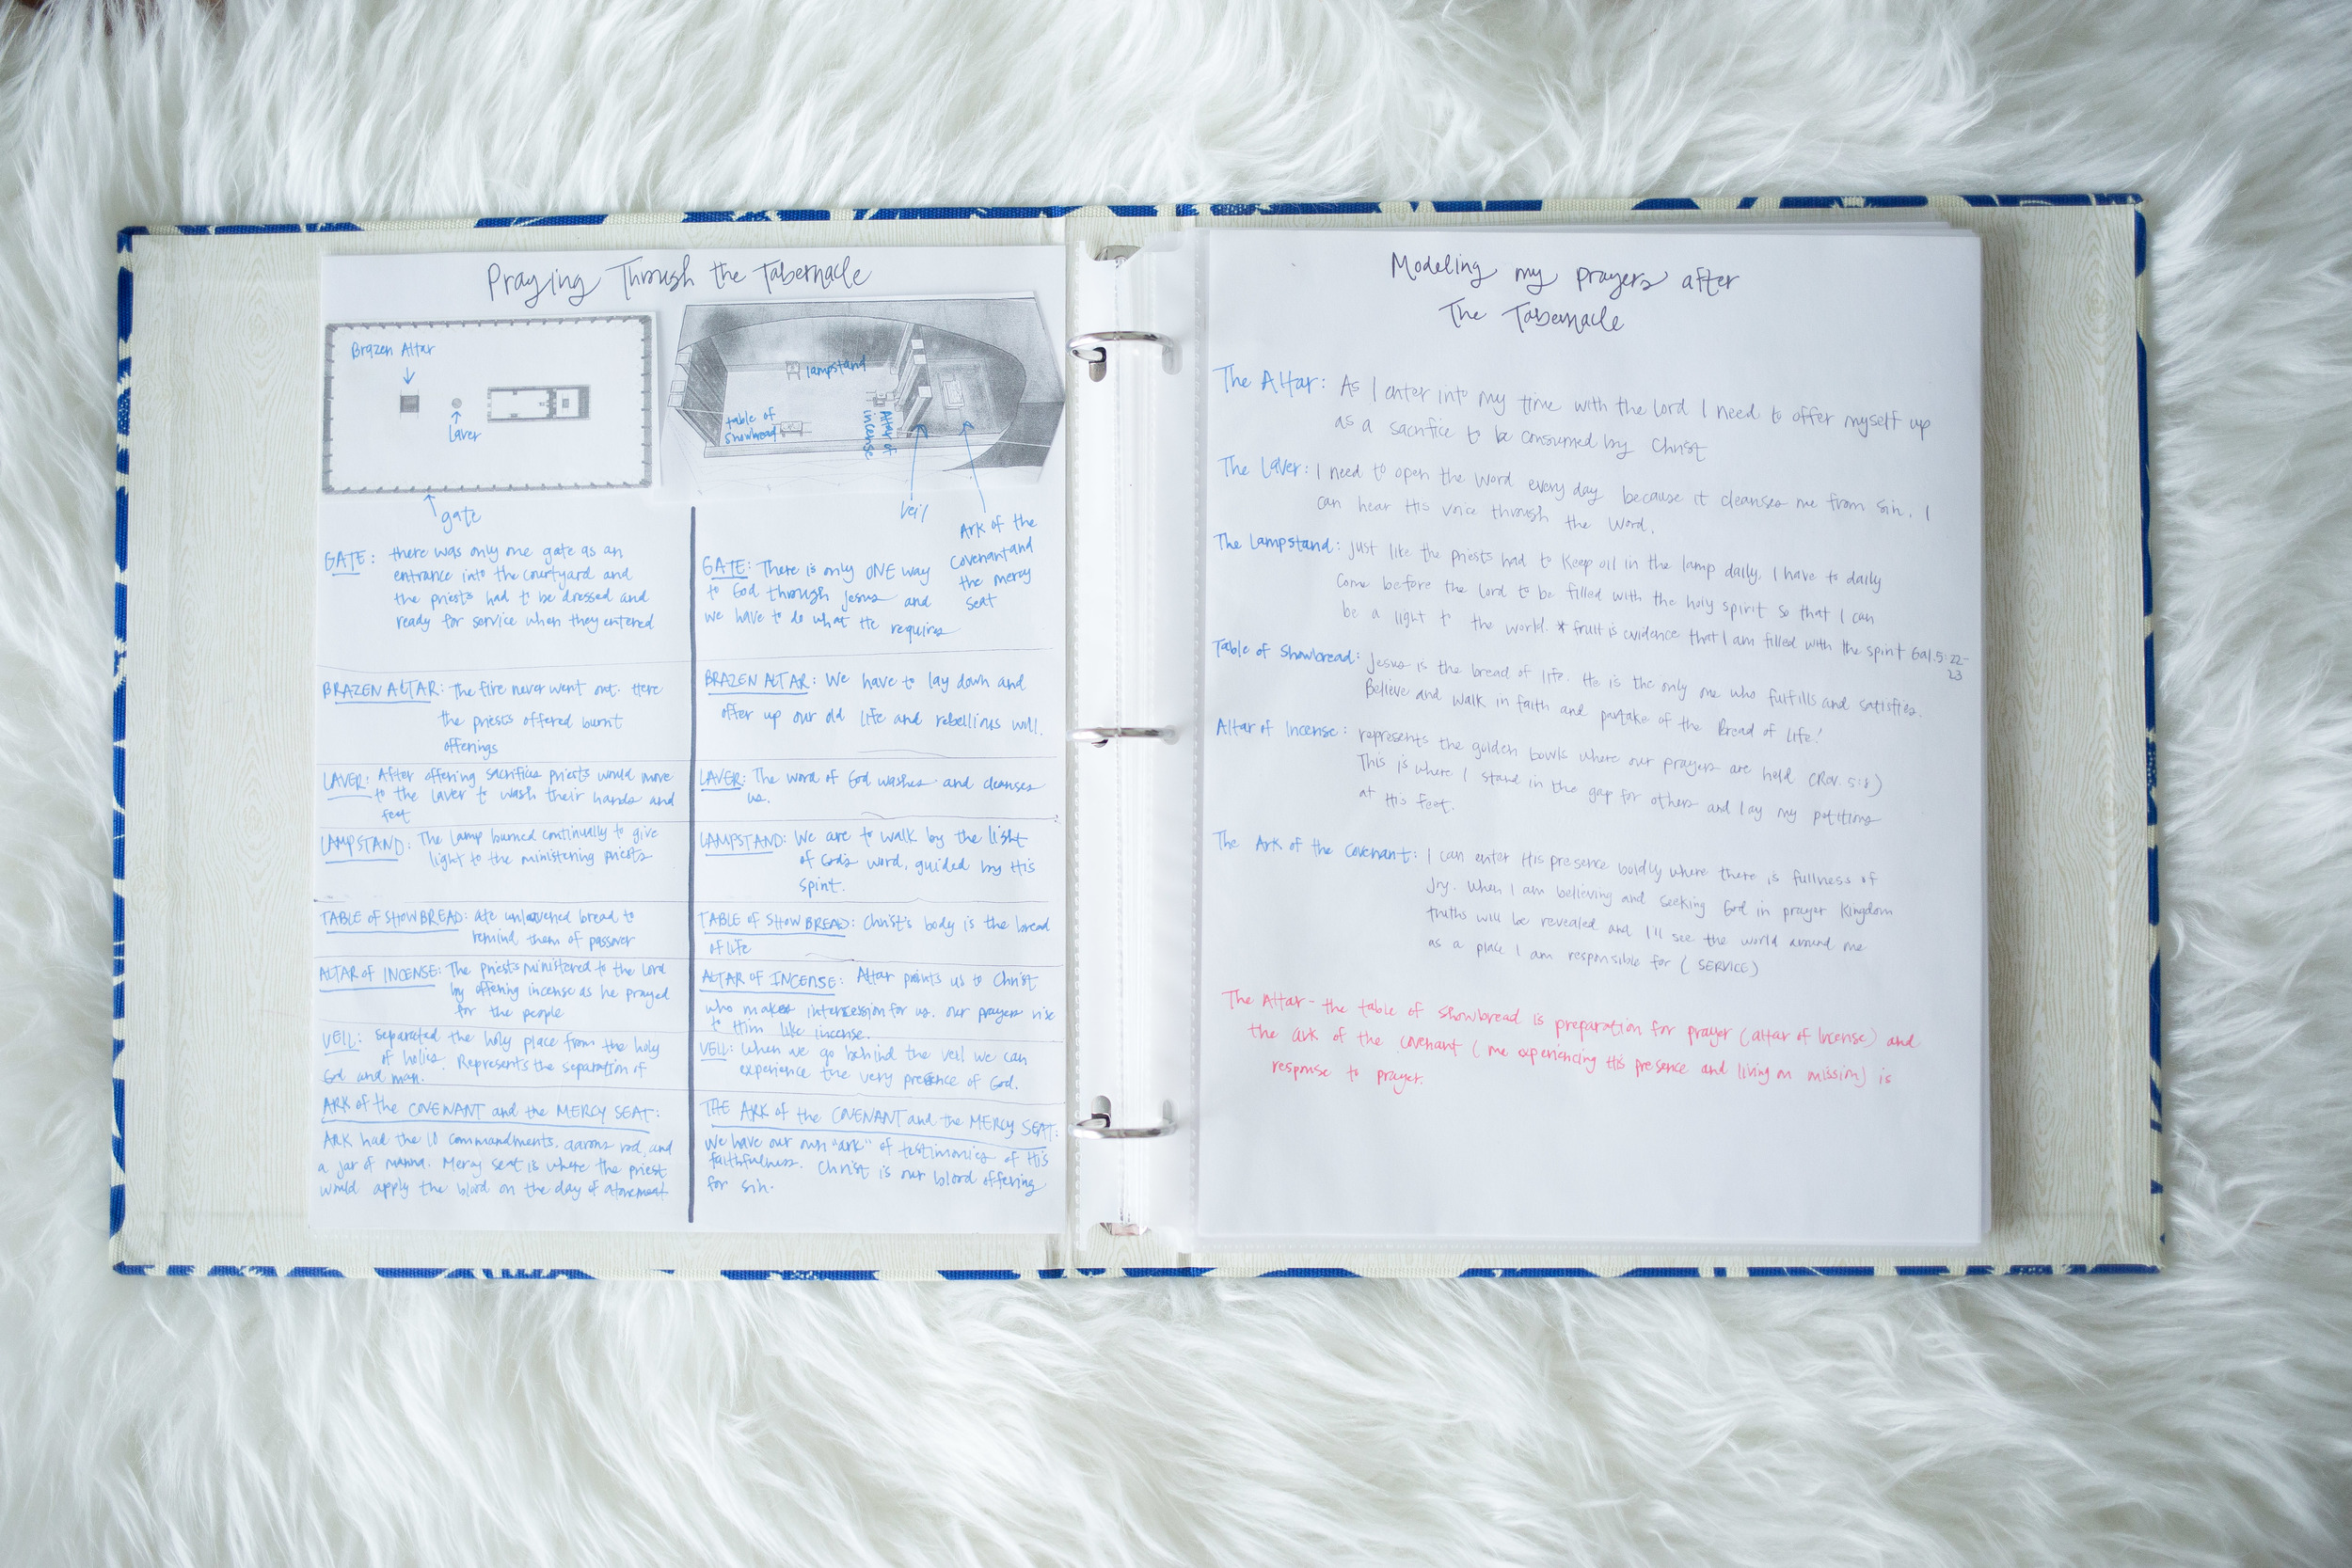 Praying Through the Tabernacle
Brazen Altar
Laver
gate
lampstand
table of
showbread
Altar of
incense
veil
Ark of the
Covenant and
the mercy
seat
GATE: there was only one gate as an
entrance into the courtyard and
the priests had to be dressed and
ready for service when they entered
BRAZEN ALTAR: The fire never went out. Here
the priests offered burnt
offerings
LAVER: After offering sacrifice priests would move
to the laver to wash their hands and
feet
LAMPSTAND: The lamp burned continually to give
light to the ministering priests
TABLE of SHOWBREAD: ate unleavened bread to
remind them of passover
ALTAR of INCENSE: The priests ministered to the Lord
by offering incense as he prayed
for the people
VEIL: Separated the holy place from the holy
of holies. Represents the separation of
God and man.
ARK of the COVENANT and the MERCY SEAT:
ARK had the 10 commandments, aarons rod, and
a jar of manna. Mercy seat is where the priest
would apply the blood on the day of atonement
GATE: There is only ONE way
to God through Jesus and
we have to do what He requires
BRAZEN ALTAR: We have to lay down and
offer up our old life and rebellious will.
LAVER: The word of God washes and cleanses
us.
LAMPSTAND: We are to walk by the light
of God's word, guided by His
spirit.
TABLE OF SHOWBREAD: Christ's body is the bread
of life
ALTAR OF INCENSE: Altar points us to Christ
who makes intercession for us. our prayers rise
to Him like incense.
VEIL: When we go behind the veil we can
experience the very presence of God.
THE ARK of the COVENANT and the MERCY SEAT:
We have our own "ark" of testimonies of His
faithfulness. Christ is our blood offering
for sin.
Modeling my prayers after
The Tabernacle
The Altar: As I enter into my time with the Lord I need to offer myself up
as a sacrifice to be consumed by Christ
The Laver: I need to open the Word every day because it cleanses me from sin. I
can hear His voice through the Word.
The Lampstand: Just like the priests had to keep oil in the lamp daily, I have to daily
come before the Lord to be filled with the holy spirit so that I can
be a light to the world. * fruit is evidence that I am filled with the spirit Gal. 5:22-
23
Table of Showbread: Jesus is the bread of life. He is the only one who fulfills and satisfies.
Believe and walk in faith and partake of the Bread of Life!
Altar of Incense: represents the golden bowls where our prayers are held (Rev. 5:8)
This is where I stand in the gap for others and lay my petitions
at His feet.
The Ark of the Covenant: I can enter His presence boldly where there is fullness of
Joy. When I am believing and seeking God in prayer Kingdom
truths will be revealed and I'll see the world around me
as a place I am responsible for (SERVICE)
The Altar - the table of showbread is preparation for prayer (altar of Incense) and
the ark of the covenant (me experiencing His presence and living on mission) is
response to prayer.